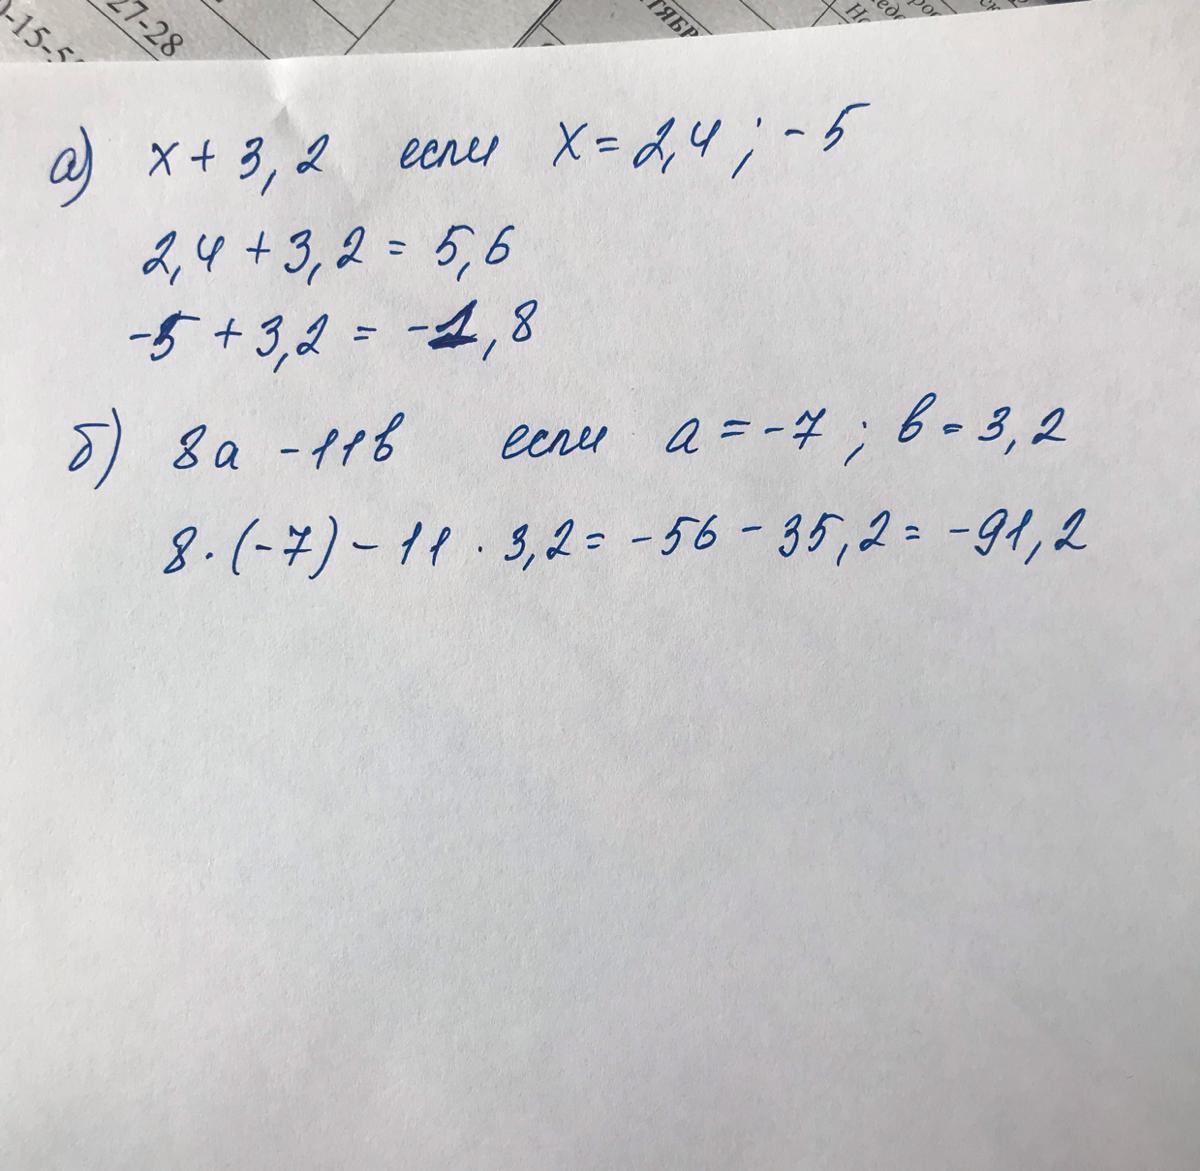 27-28
а) x + 3,2 если x = 2,4 ; -5
2,4 + 3,2 = 5,6
-5 + 3,2 = -1,8
б) 8a - 11в если a = -7 ; в = 3,2
8 · (-7) - 11 · 3,2 = -56 - 35,2 = -91,2